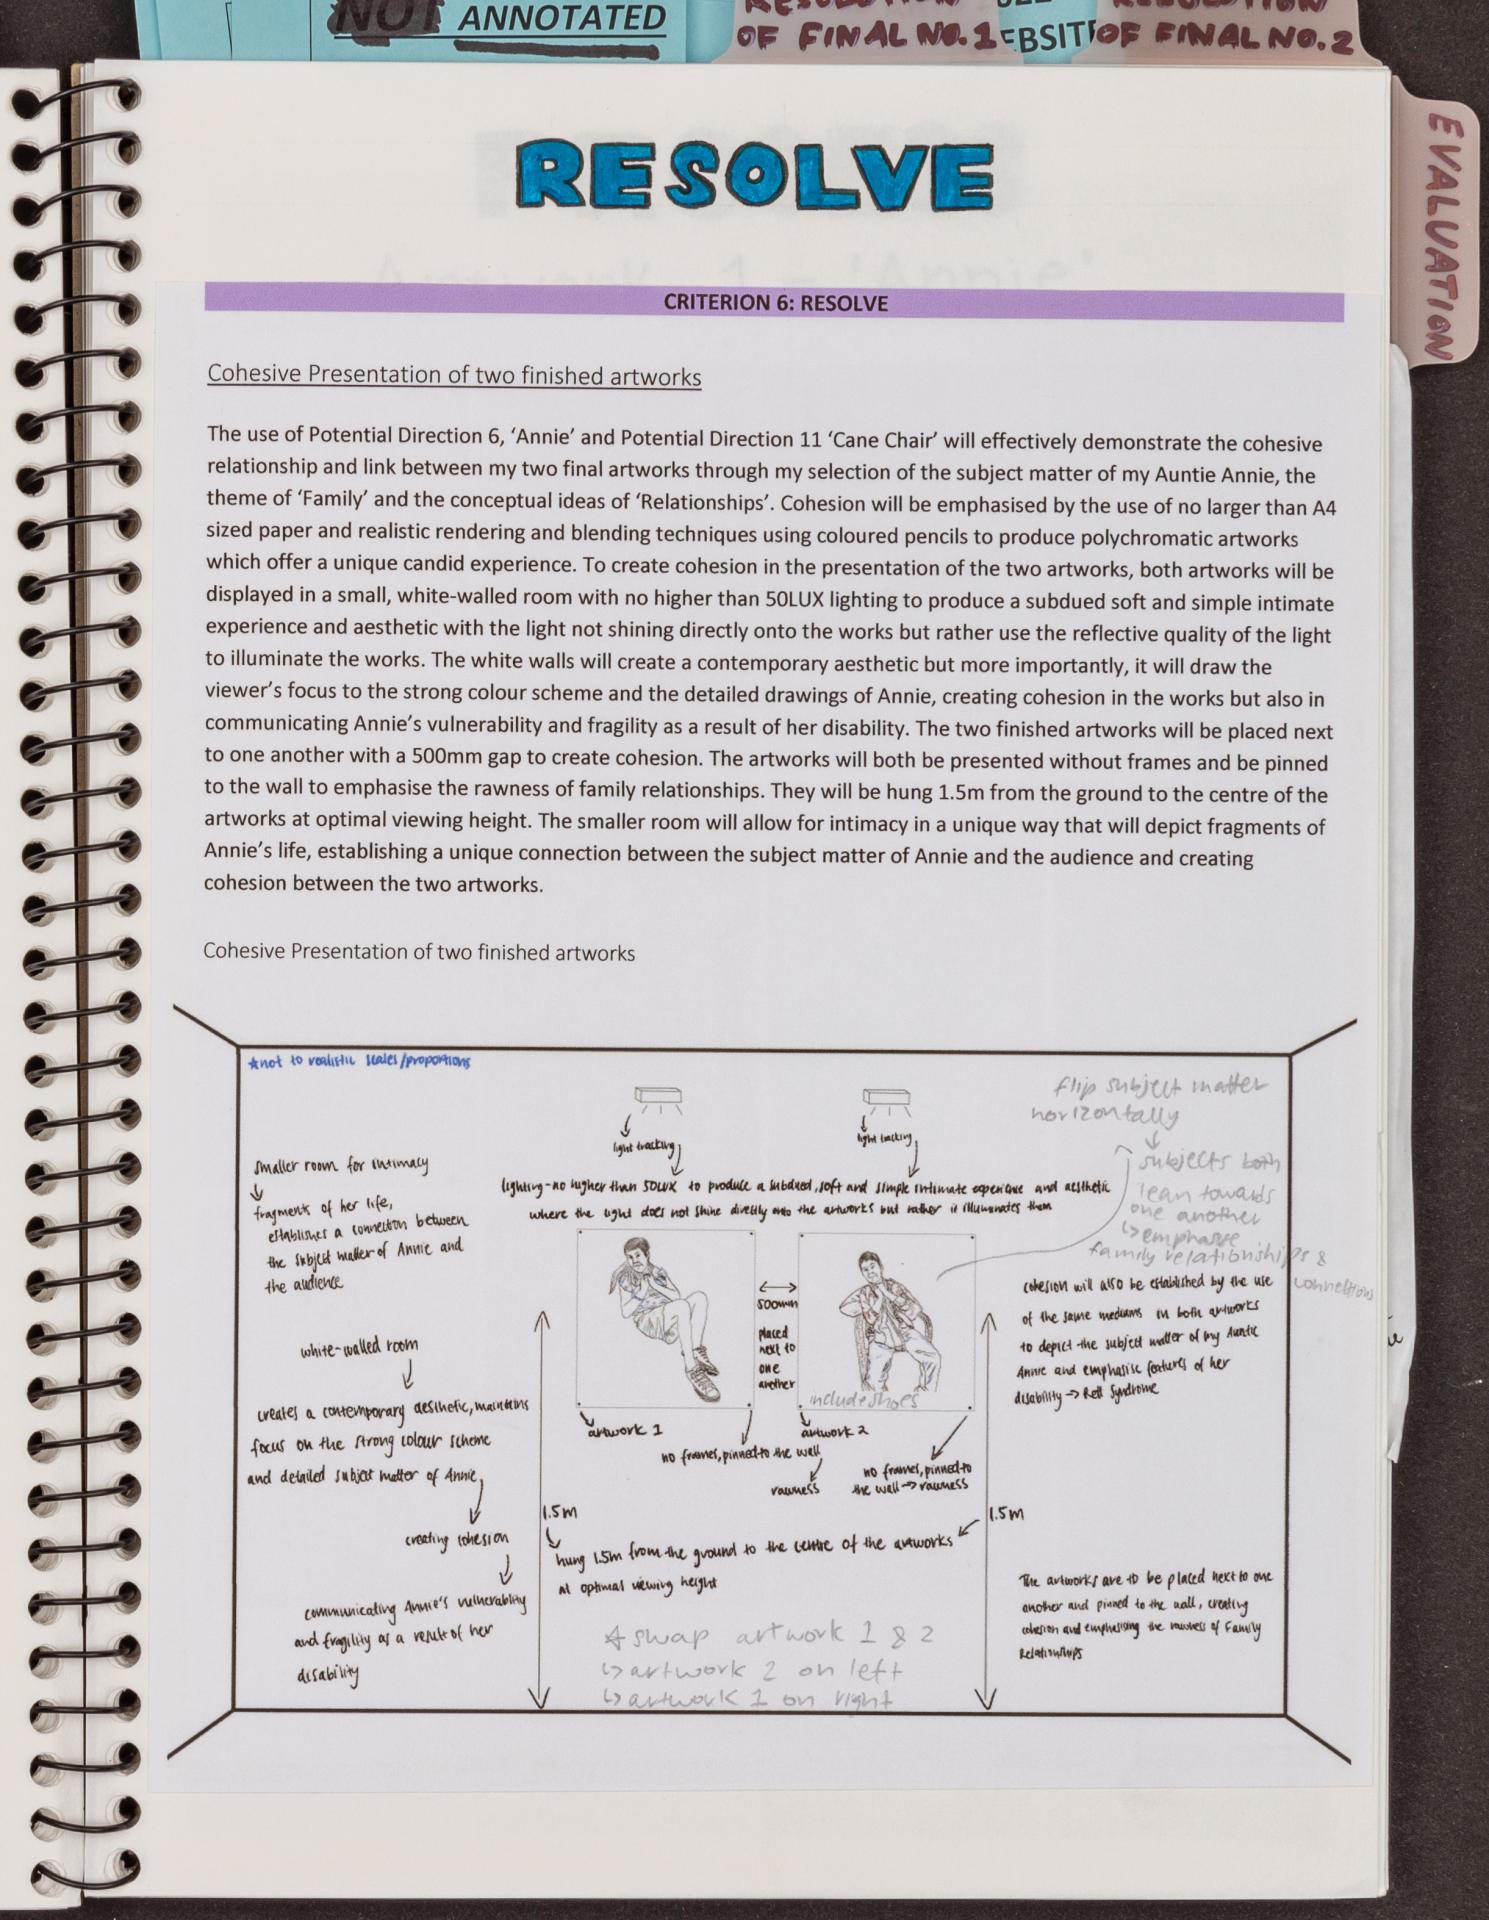 NOT ANNOTATED
OF FINAL NO. 1
EBSIT
OF FINAL NO. 2
EVALUATION
RESOLVE
CRITERION 6: RESOLVE
Cohesive Presentation of two finished artworks
The use of Potential Direction 6, ‘Annie’ and Potential Direction 11 ‘Cane Chair’ will effectively demonstrate the cohesive
relationship and link between my two final artworks through my selection of the subject matter of my Auntie Annie, the
theme of ‘Family’ and the conceptual ideas of ‘Relationships’. Cohesion will be emphasised by the use of no larger than A4
sized paper and realistic rendering and blending techniques using coloured pencils to produce polychromatic artworks
which offer a unique candid experience. To create cohesion in the presentation of the two artworks, both artworks will be
displayed in a small, white-walled room with no higher than 50LUX lighting to produce a subdued soft and simple intimate
experience and aesthetic with the light not shining directly onto the works but rather use the reflective quality of the light
to illuminate the works. The white walls will create a contemporary aesthetic but more importantly, it will draw the
viewer’s focus to the strong colour scheme and the detailed drawings of Annie, creating cohesion in the works but also in
communicating Annie’s vulnerability and fragility as a result of her disability. The two finished artworks will be placed next
to one another with a 500mm gap to create cohesion. The artworks will both be presented without frames and be pinned
to the wall to emphasise the rawness of family relationships. They will be hung 1.5m from the ground to the centre of the
artworks at optimal viewing height. The smaller room will allow for intimacy in a unique way that will depict fragments of
Annie’s life, establishing a unique connection between the subject matter of Annie and the audience and creating
cohesion between the two artworks.
Cohesive Presentation of two finished artworks
*not to realistic scales/proportions
light tracking
light tracking
lighting - no higher than 50LUX to produce a subdued, soft and simple intimate experience and aesthetic
where the light does not shine directly onto the artworks but rather it illuminates them
flip subject matter
horizontally
subjects both
lean towards
one another
emphasise
family relationships &
connections
smaller room for intimacy
fragments of her life,
establishes a connection between
the subject matter of Annie and
the audience
white-walled room
creates a contemporary aesthetic, maintains
focus on the strong colour scheme
and detailed subject matter of Annie,
creating cohesion
communicating Annie's vulnerability
and fragility as a result of her
disability
500mm
placed
next to
one
another
include shoes
artwork 1
no frames, pinned to the wall
rawness
artwork 2
no frames, pinned to
the wall → rawness
cohesion will also be established by the use
of the same mediums in both artworks
to depict the subject matter of my Auntie
Annie and emphasise features of her
disability → Rett Syndrome
1.5m
1.5m
hung 1.5m from the ground to the centre of the artworks
at optimal viewing height
The artworks are to be placed next to one
another and pinned to the wall, creating
cohesion and emphasising the rawness of Family
Relationships
* swap artwork 1 & 2
↳ artwork 2 on left
↳ artwork 1 on right